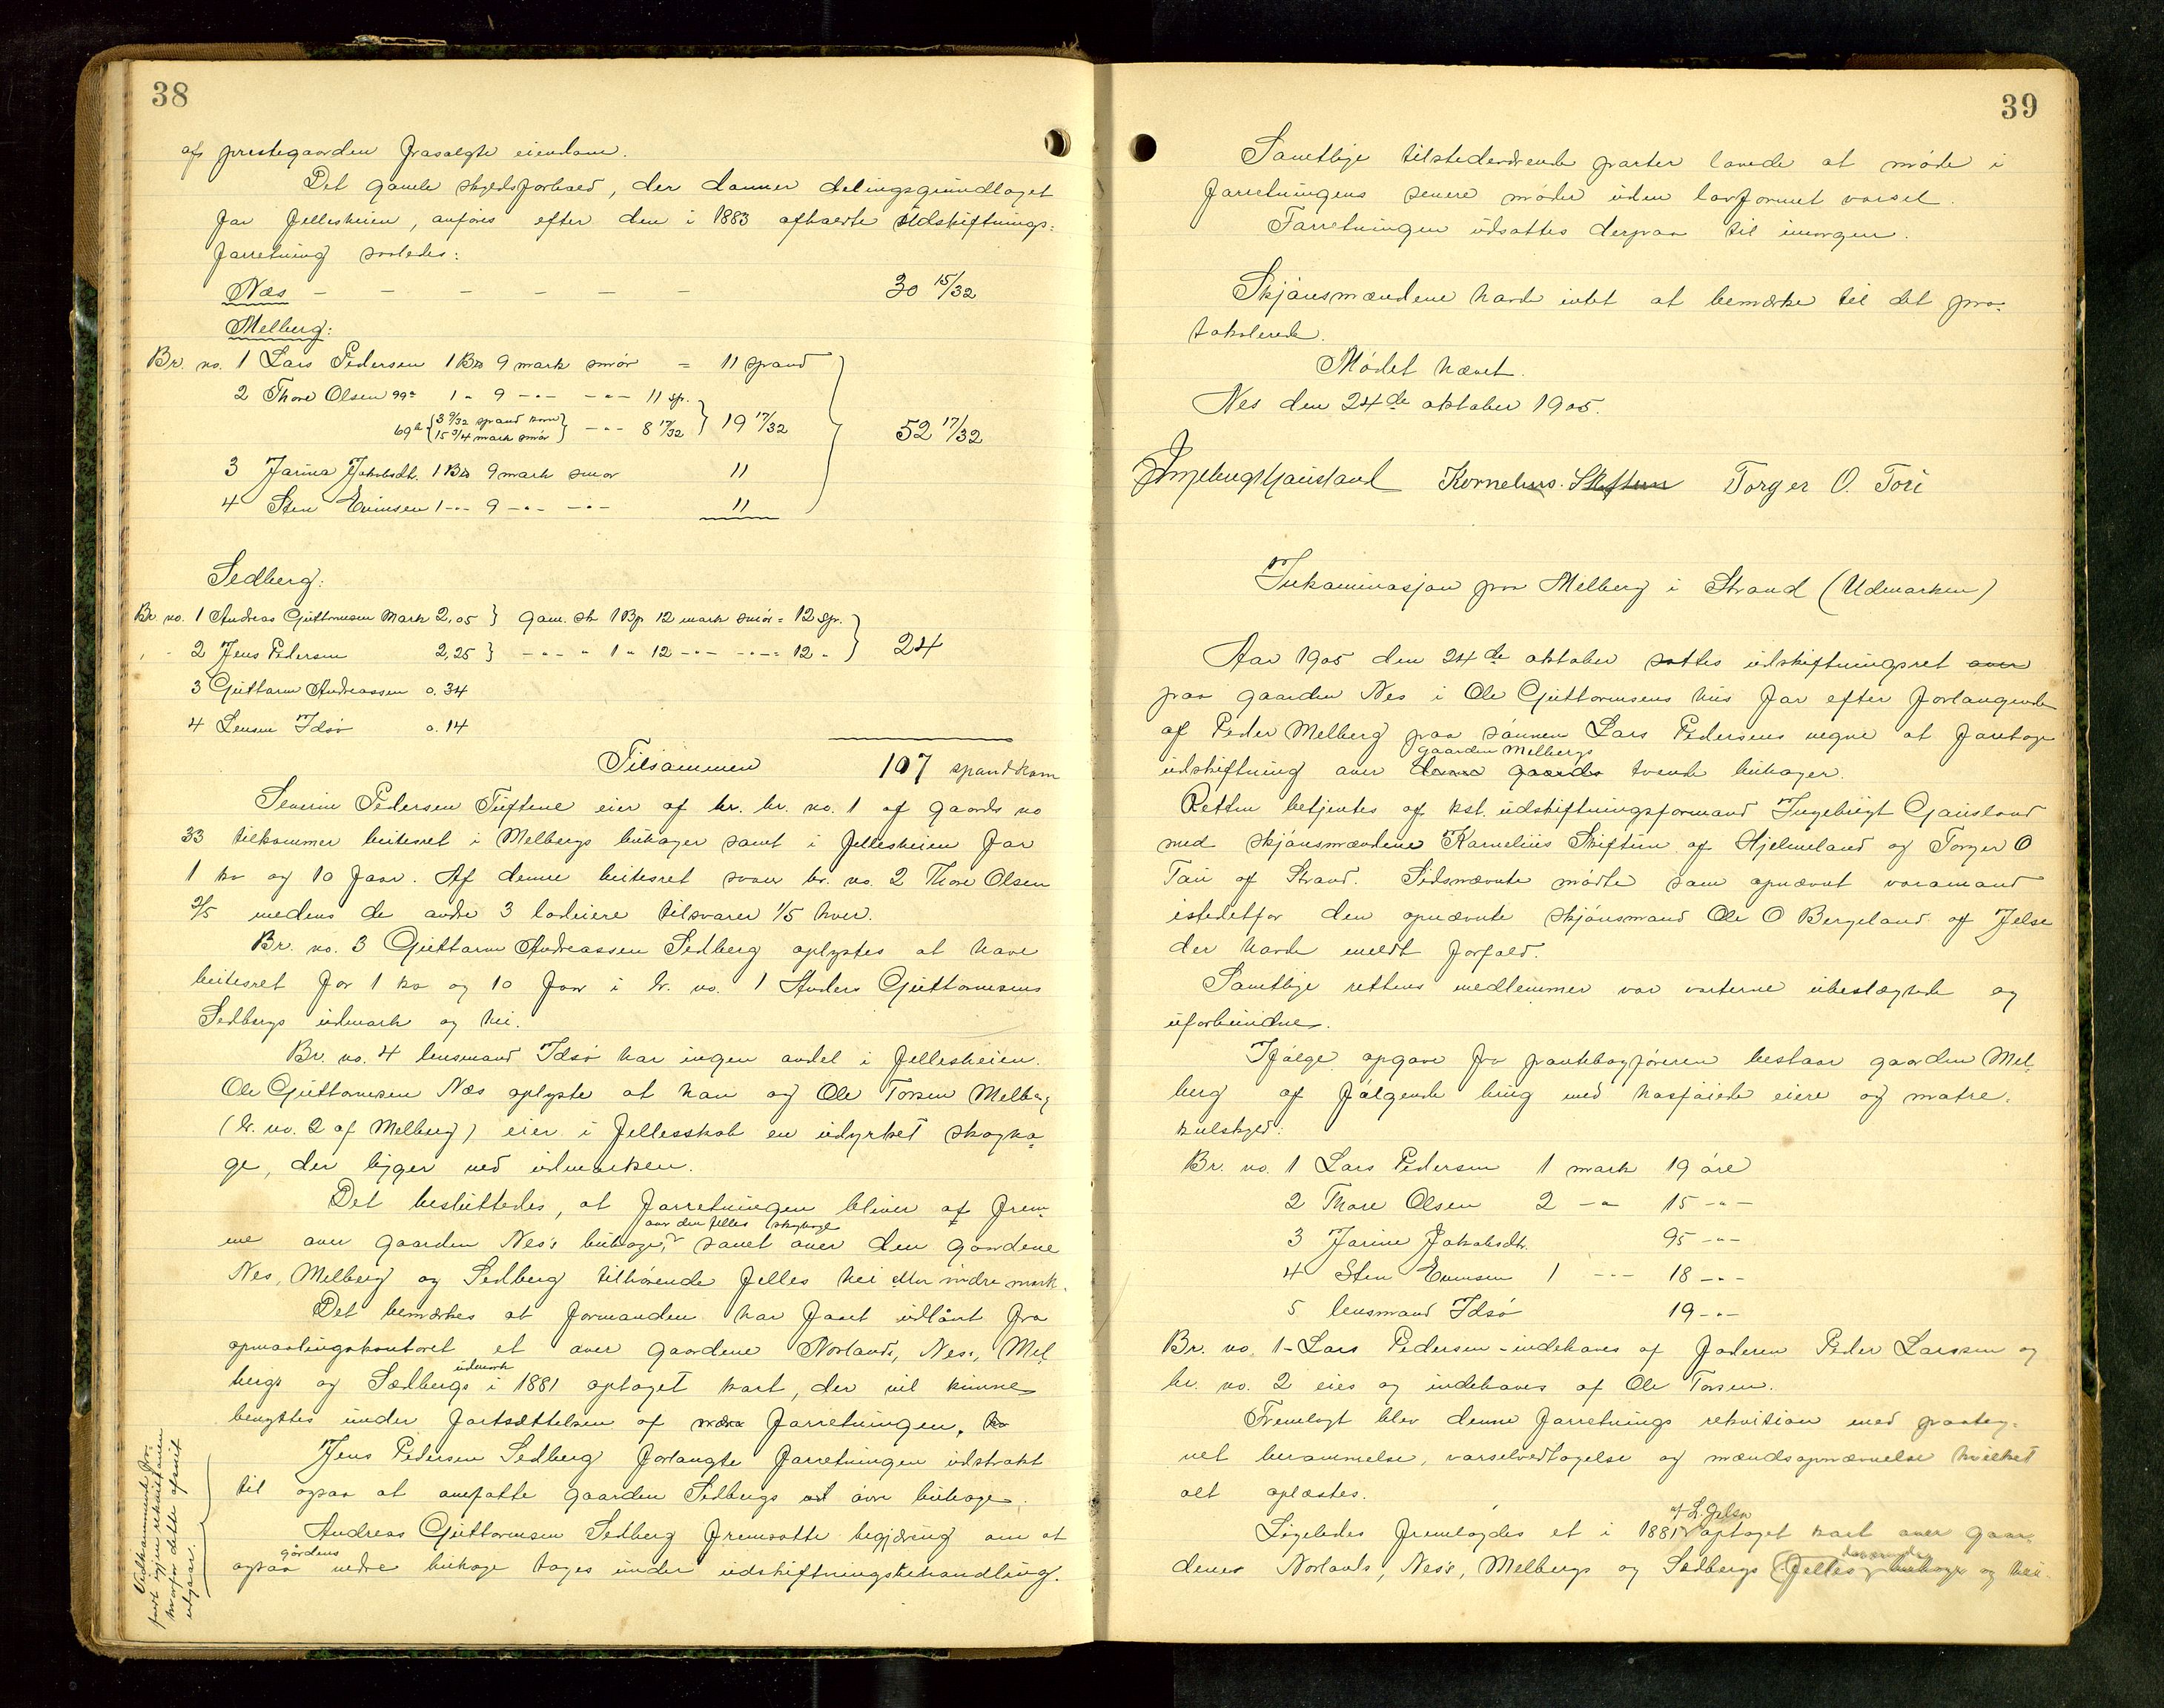 38
af prestegaarden frasolgte eiendom.
Det gamle skyldsforhold, der danner delingsgrundlaget
for fellesheien, anføres efter den i 1883 afholdte Udskiftnings-
forretning saaledes:
Næs - - - - - - 30 15/32
Melberg:
Br. no. 1 Lars Pedersen 1 Bp 9 mark smør = 11 spand
2 Thore Olsen 99a 1 - 9 -"- -"- 11 sp.
69b {3 9/32 spand korn 15 3/4 mark smør} -"- 8 17/32 } 19 17/32
52 17/32
3 Jarina Jakobsdt. 1 Bp 9 mark smør 11
4 Sten Evensen 1 -"- 9 -"- -"- 11
Sedberg:
Br. no. 1 Andreas Guttormsen Mark 2,05 } gam. sk 1 Bp. 12 mark smør = 12 sp.
" - 2 Jens Pedersen 2,25 } -"- " 1 " 12 -"- -"- = 12 " } 24
3 Guttorm Andreassen 0.34
4 Lensm Idsø 0.14
Tilsammen 107 spand korn
Severin Pedersen Tuftene eier af br. br. no. 1 af gaards no
33 tilkommer beitesret i Melbergs buhager samt i fellesheien for
1 ko og 10 faar. Af denne beitesret svarer br. no. 2 Thore Olsen
2/5 medens de andre 3 lodeiere tilsvarer 1/5 hver.
Br. no. 3 Guttorm Andreassen Sedberg oplystes at have
beitesret for 1 ko og 10 faar i br. no. 1 Anders Guttormsens
Sedbergs udmark og hei.
Br. no. 4 lensmand Idsø har ingen andel i fellesheien.
Ole Guttormsen Næs oplyste at han og Ole Torsen Melberg
(br. no. 2 af Melberg) eier i fellesskab en udyrket skogha-
ge, der ligger ved udmarken.
Det besluttedes, at forretningen bliver at frem-
over den felles skoghage
me over gaarden Nes's buhage, samt over den gaardene
Nes, Melberg og Sedberg tilhørende felles hei eller indre mark.
Det bemerkes at formanden har faaet udlånt fra
opmaalingskontoret et over gaardene Norlands, Nes's, Mel-
udmark
bergs og Sædbergs i 1881 optaget kart, der vil kunne
benyttes under fortsættelsen af forretningen.
Jens Pedersen Sedberg forlangte forretningen udstrakt
til ogsaa at omfatte gaarden Sedbergs øvre buhage.
Andreas Guttormsen Sedberg fremsatte begjæring om at
gårdens
ogsaa nedre buhage tages under udskiftningsbehandling.
Vedkommende for-
igjen rekvisitionen
hvorfor dette afsnit
udgaar.
39
Samtlige tilstedeværende parter lovede at møde i
forretningens senere møder uden lovformet varsel.
Forretningen udsattes derpaa til imorgen.
Skjønsmændene havde intet at bemerke til det pro-
tokolerede.
Mødet hævet.
Nes den 24de oktober 1905.
Ingebrigt Gausland Kornelius Skiftun Torger O. Tou
Inkaminasjon paa Melberg i Strand (Udmarken)
Aar 1905 den 24de oktober sattes udskiftningsret over
paa gaarden Nes i Ole Guttormsens hus for efter forlangende
af Peder Melberg paa sønnen Lars Pedersens vegne at foretage
gaarden Melbergs
udskiftning over denne gaards tvende buhager.
Retten betjentes af kst. udskiftningsformand Ingebrigt Gausland
med skjønsmændene Kornelius Skiftun af Hjelmeland og Torger O
Tou af Strand. Sidsnævnte mødte som opnævnt varamand
istedetfor den opnævnte skjønsmand Ole O Bergeland af Jelse
der havde meldt forfald.
Samtlige rettens medlemmer var parterne ubeslegtede og
uforbundne.
Ifølge opgave fra pantebogføreren bestaar gaarden Mel-
berg af følgende brug med hosføiede eiere og matre-
kulskyld:
Br. no. 1 Lars Pedersen 1 mark 19 øre
2 Thore Olsen 2 -"- 15 -"-
3 Jarine Jakobsdt. 95 -"-
4 Sten Evensen 1 -"- 18 -"-
5 lensmand Idsø 19 -"-
Br. no. 1 - Lars Pedersen - indehaves af faderen Peder Larssen og
br. no. 2 eies og indehaves af Ole Torsen.
Fremlagt blev denne forretnings rekvisition med paateg-
net berammelse, varselvedtagelse og mændsopnævnelse hvilket
alt oplæstes.
af L. Jelsa
Ligeledes fremlagdes et i 1881 optaget kart over gaar-
denes Norlands, Nes's, Melbergs og Sedbergs (felles buhager og hei